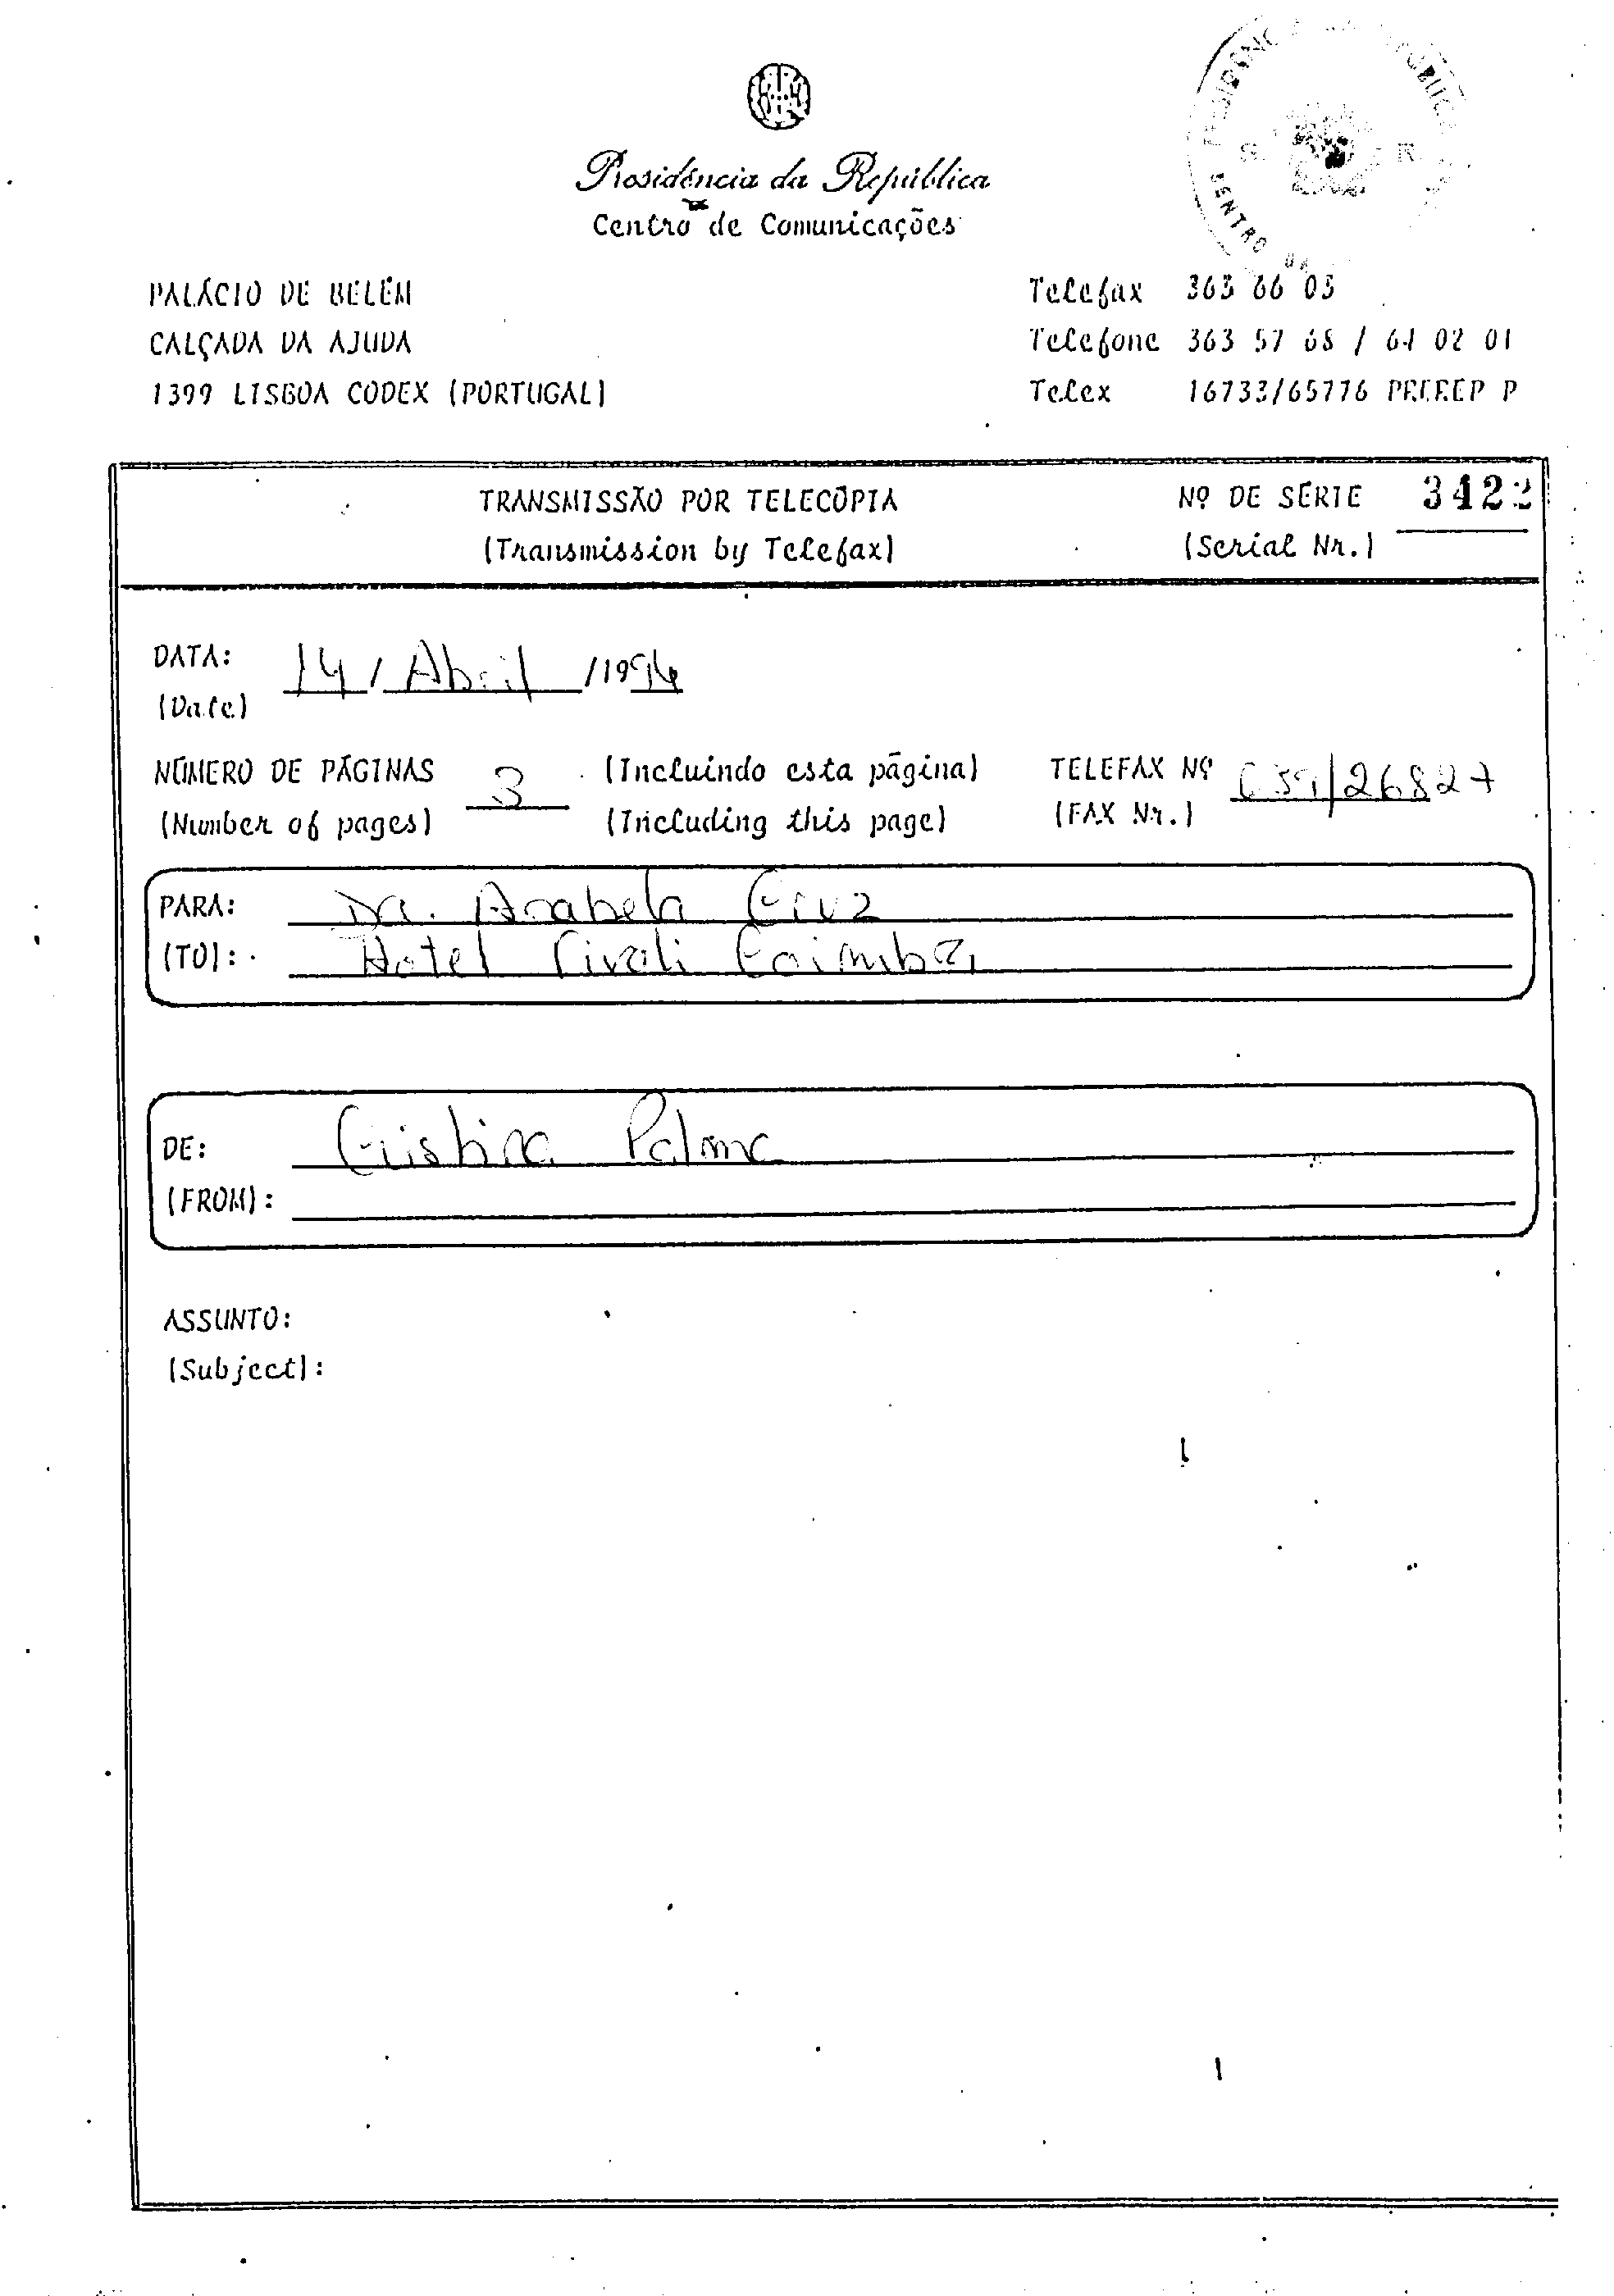 Presidência da República
Centro de Comunicações
PRESIDÊNCIA REPÚBLICA
S. R.
CENTRO
PALÁCIO DE BELÉM
CALÇADA DA AJUDA
1399 LISBOA CODEX (PORTUGAL)
Telefax 363 66 03
Telefone 363 57 68 / 64 02 01
Telex 16733/65776 P
TRANSMISSÃO POR TELECÓPIA
(Transmission by Telefax)
Nº DE SÉRIE 3422
(Serial Nr.)
DATA: 14 / Abril / 1994
(Date)
NÚMERO DE PÁGINAS 3 (Incluindo esta página) TELEFAX Nº 039/26827
(Number of pages) (Including this page) (FAX Nr.)
PARA: Dra. Anabela Cruz
(TO): Hotel Tivoli Coimbra
DE: Cristina Palma
(FROM):
ASSUNTO:
(Subject):